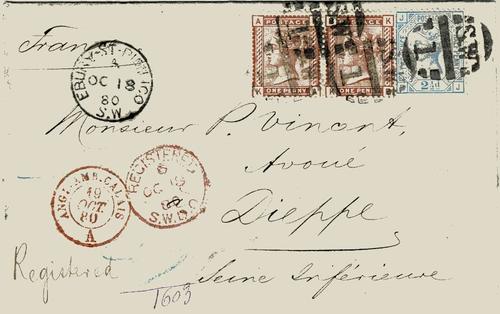 France
A K
ONE PENNY
B K
ONE PENNY
J J
2½d
EBURY-ST-PIMLICO
A
OC 18
80
S.W.
Monsieur P. Vinant,
Avoué
Dieppe
Seine Inférieure
ANGL. AMB. CALAIS
19
OCT.
80
A
REGISTERED
6
OC 19
80
S.W.D.O
Registered
1603